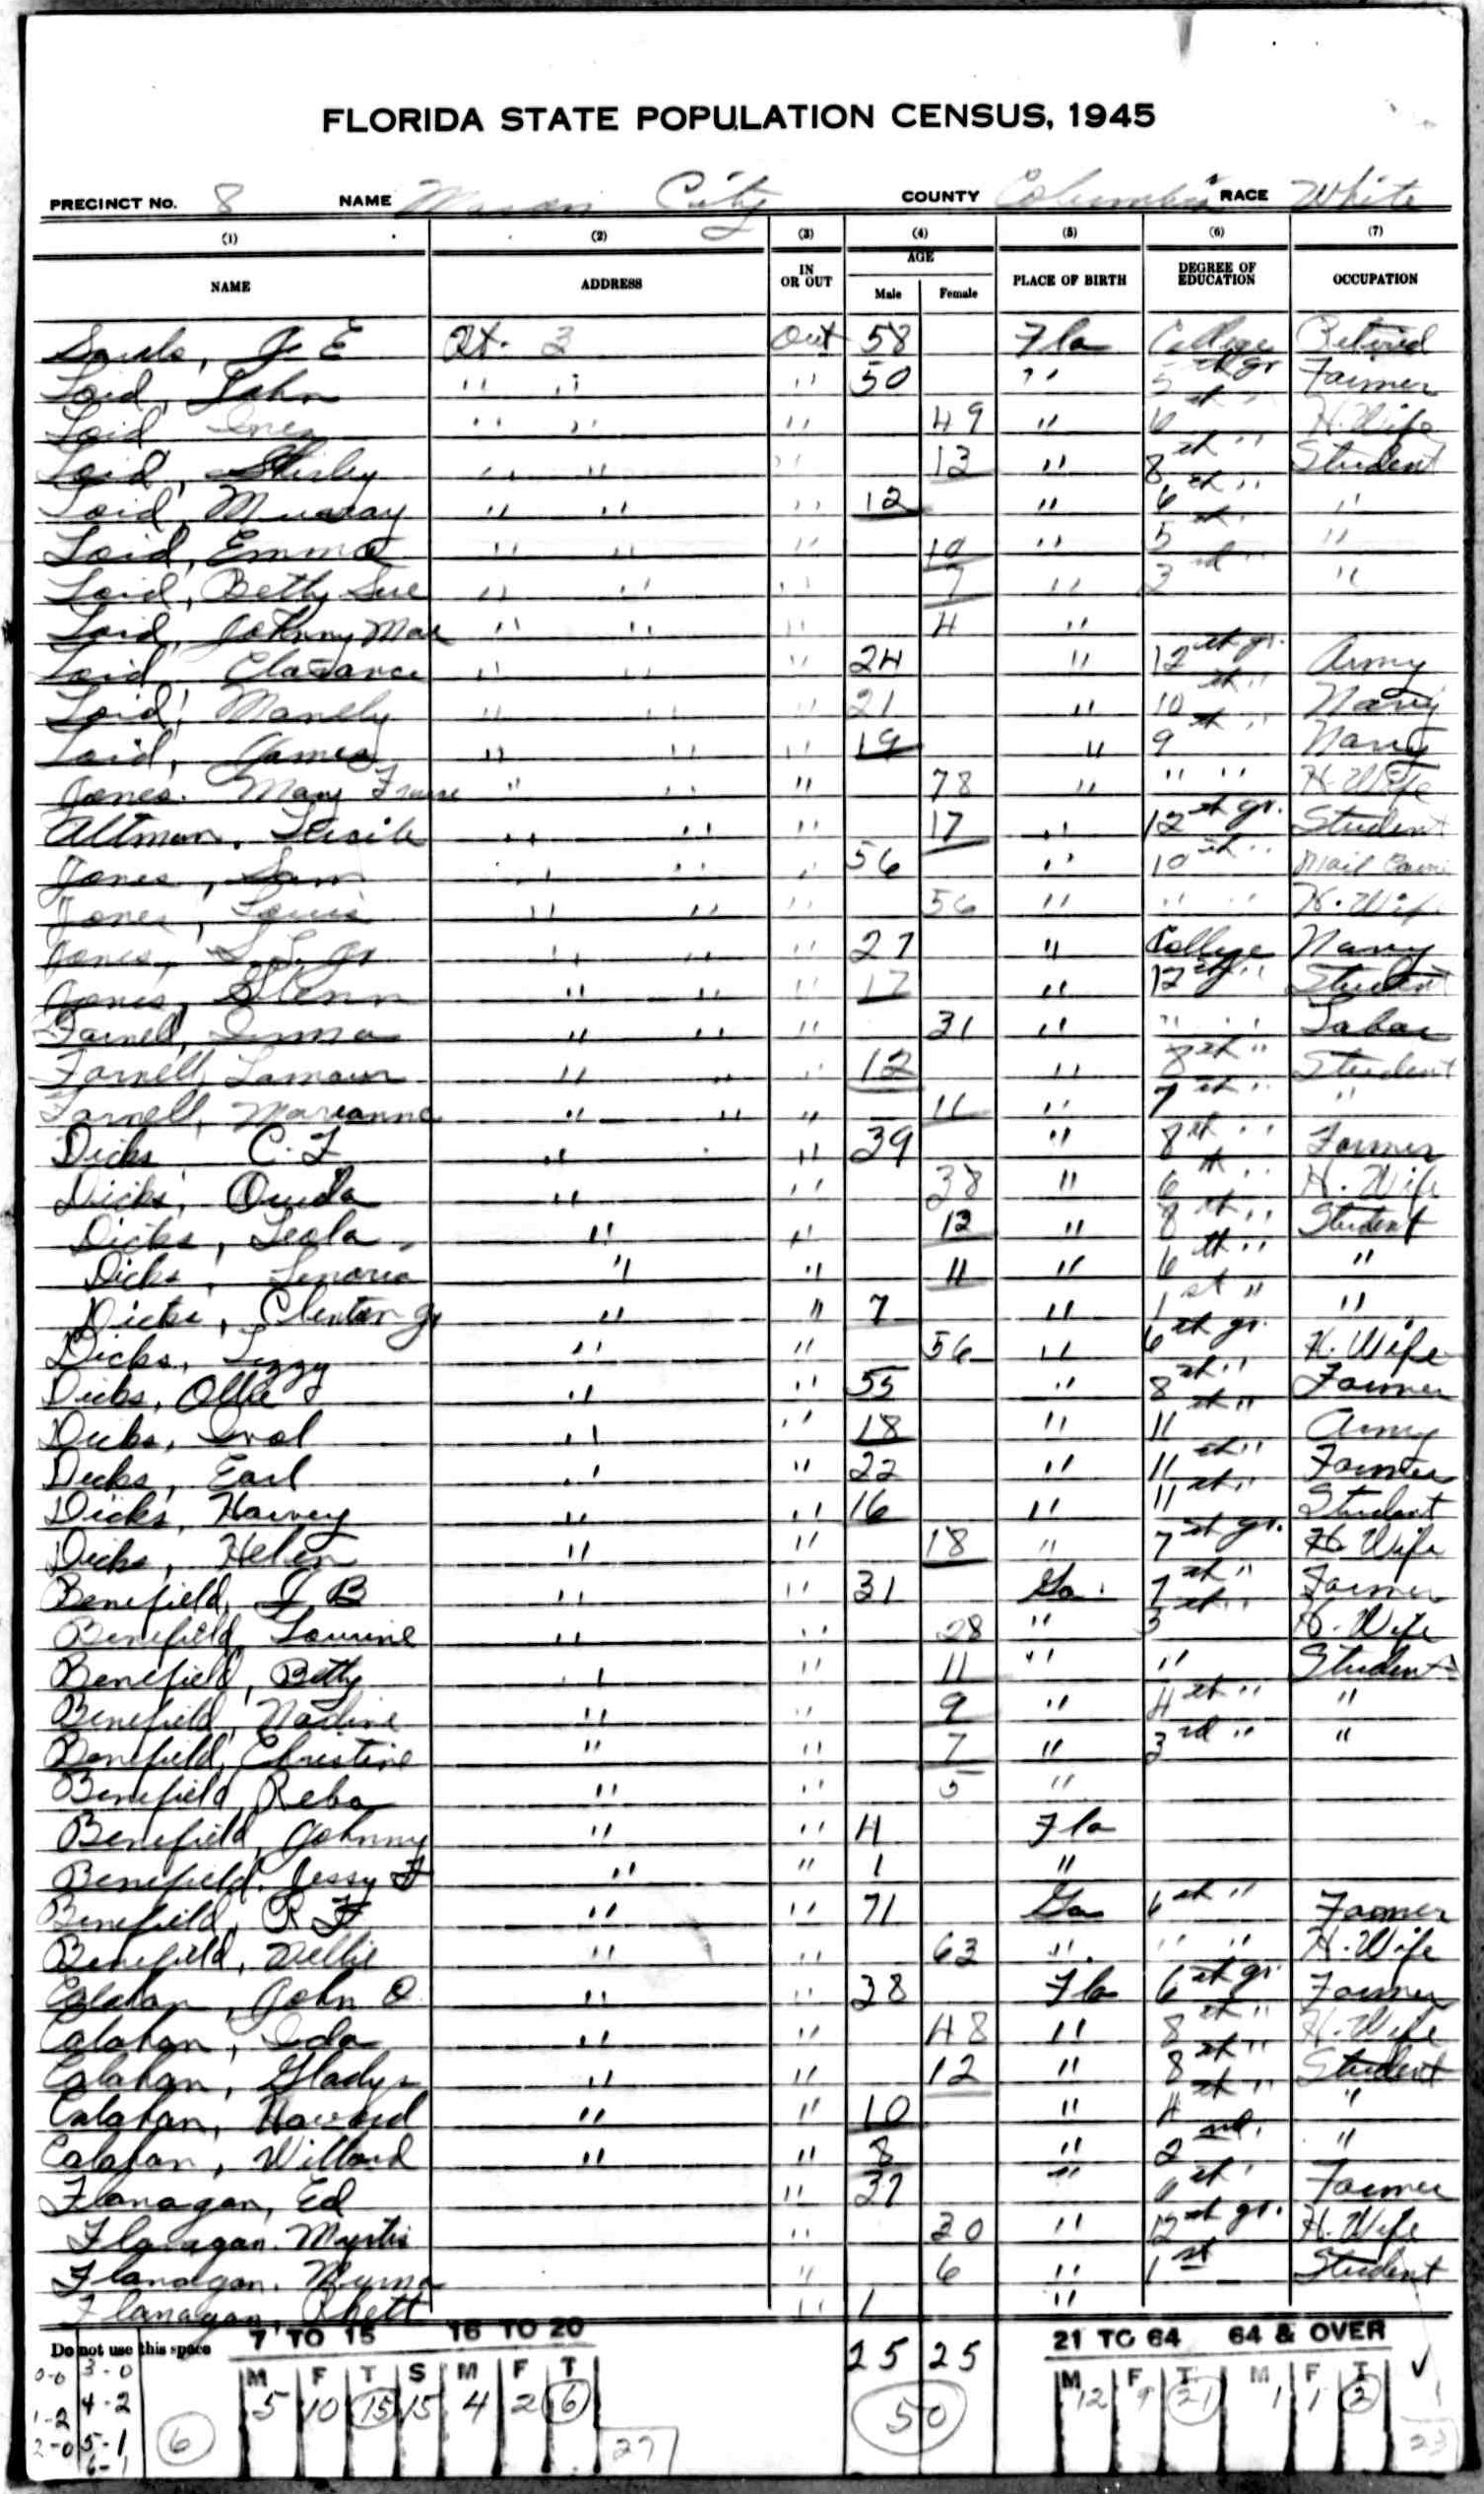 FLORIDA STATE POPULATION CENSUS, 1945
PRECINCT No. 8 NAME Mason City COUNTY Columbia RACE White
(1) (2) (3) (4) (5) (6) (7)
NAME ADDRESS IN OR OUT AGE Male Female PLACE OF BIRTH DEGREE OF EDUCATION OCCUPATION
J E Rt. 3 Out 58 Fla College Retired
John " " " 50 " 5th gr Farmer
Inez " " " 49 " 6th " H. Wife
Shirley " " " 13 " 8th " Student
Murray " " " 12 " 6th " "
Emma " " " 10 " 5th " "
Betty Sue " " " 7 " 3rd " "
Johnny Mae " " " 4 "
Clarance " " " 24 " 12th gr. Army
Manely " " " 21 " 10th " Navy
James " " " 19 " 9th " Navy
Jones. Mary " " " 78 " " " H. Wife
Altman, Lucile " " " 17 " 12th gr. Student
Jones, Sam " " " 56 " 10th " Mail
Jones, " " " 56 " " " H. Wife
Jones, S. L. Jr " " " 27 " College Navy
Jones, Glenn " " " 17 " 12th " Student
Farnell, Irma " " " 31 " " " Labor
Farnell, Lamour " " " 12 " 8th " Student
Farnell, Marianne " " " 11 " 7th " "
Dicks C. F " " 39 " 8th " Farmer
Dicks, Ouida " " 38 " 6th " H. Wife
Dicks, Leola " " 12 " 8th " Student
Dicks, Lenora " " 11 " 6th " "
Dicks, Clenton Jr " " 7 " 1st " "
Dicks, Lizzy " " 56 " 6th gr. H. Wife
Dicks, Ollie " " 55 " 8th " Farmer
Dicks, " " 18 " 11th " Army
Dicks, Earl " " 22 " 11th " Farmer
Dicks, Harvey " " 16 " 11th " Student
Dicks, Helen " " 18 " 7th gr. H. Wife
Benefield, J B " " 31 Ga. 7th " Farmer
Benefield, Lourine " " 28 " 5th " H. Wife
Benefield, Betty " " 11 " " Student
Benefield, Nadine " " 9 " 4th " "
Benefield, Christine " " 7 " 3rd " "
Benefield, Reba " " 5 "
Benefield, Johnny " " 4 Fla
Benefield, Jessy F " " 1 "
Benefield, R F " " 71 Ga 6th " Farmer
Benefield, Nellie " " 63 " " " H. Wife
Calahan, John O " " 38 Fla 6th gr. Farmer
Calahan, Ida " " 48 " 8th " H. Wife
Calahan, Gladys " " 12 " 8th " Student
Calahan, Howard " " 10 " 4th " "
Calahan, Willard " " 8 " 2nd. "
Flanagan, Ed " 37 " 6th " Farmer
Flanagan. Myrtis " 30 " 12th gr. H. Wife
Flanagan. Myrna " 6 " 1st Student
Flanagan, Rhett " 1 "
Do not use this space 7 TO 15 16 TO 20 25 25 21 TO 64 64 & OVER
0-0 3-0 M F T S M F T M F T M F T ✓
1-2 4-2 5 10 15 15 4 2 6 50 12 9 21 1 1 2
2-0 5-1 6 27 23
6-1